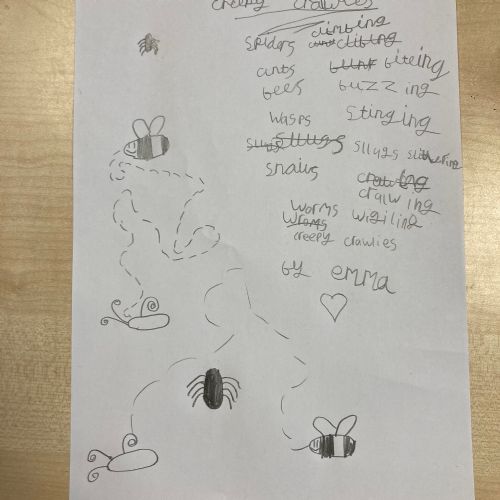 creepy crawlies
spiders climbing
ants biteing
bees buzzing
wasps stinging
sllugs slithering
snails
cralwing
worms wigiling
creepy crawlies
by emma